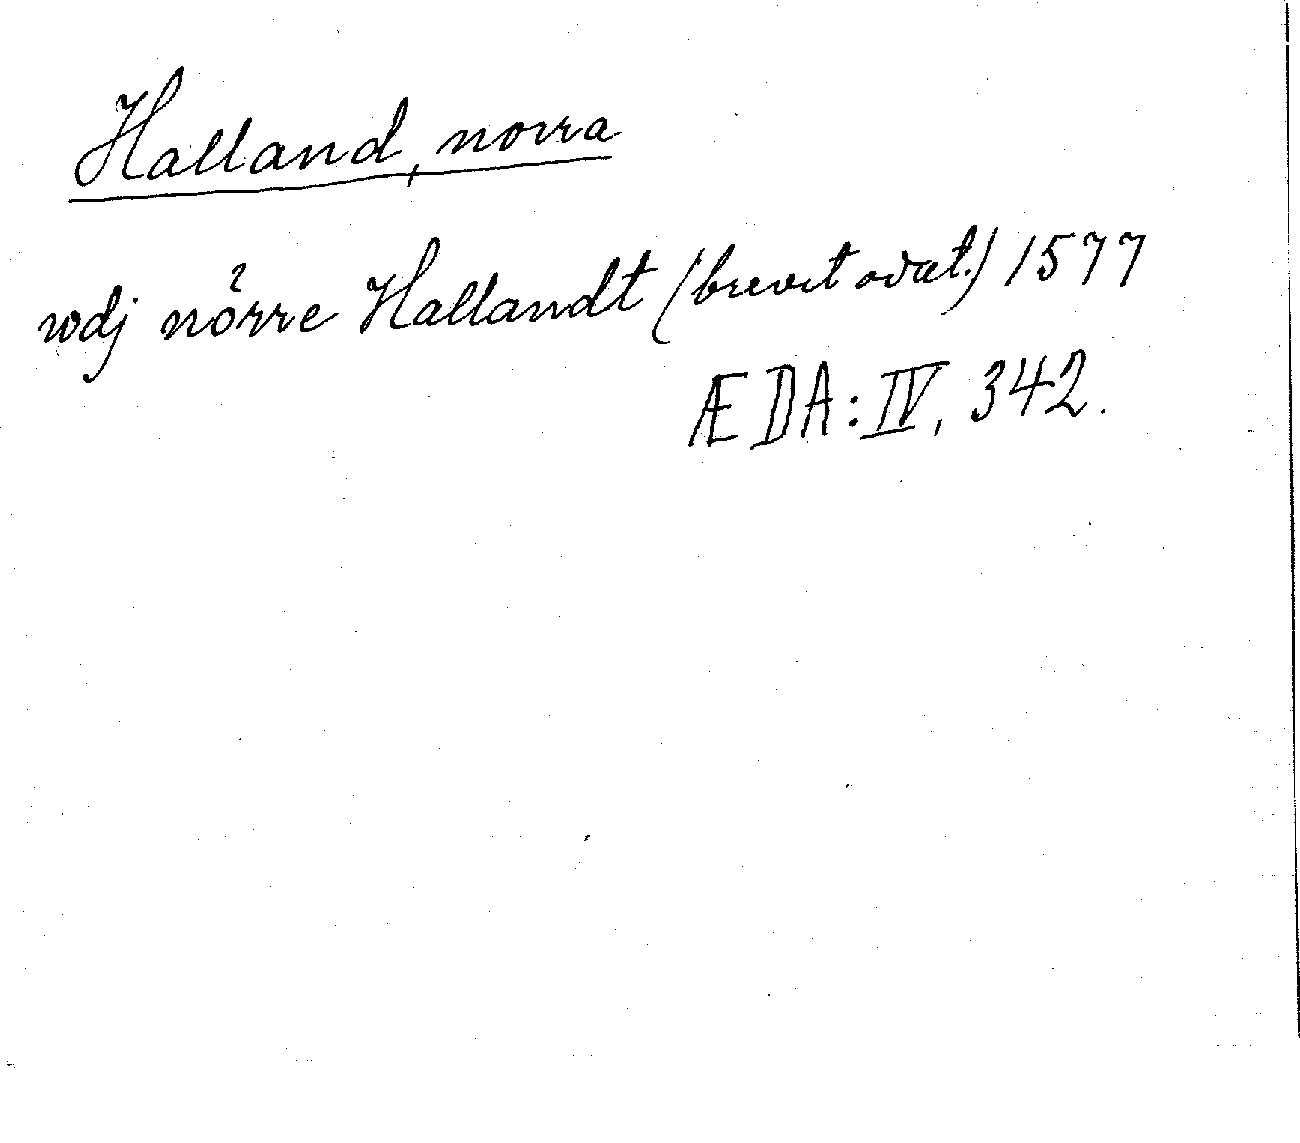 Halland, norra
wdj nörre Hallandt (brevet odat.) 1577
ÆDA: IV, 342.